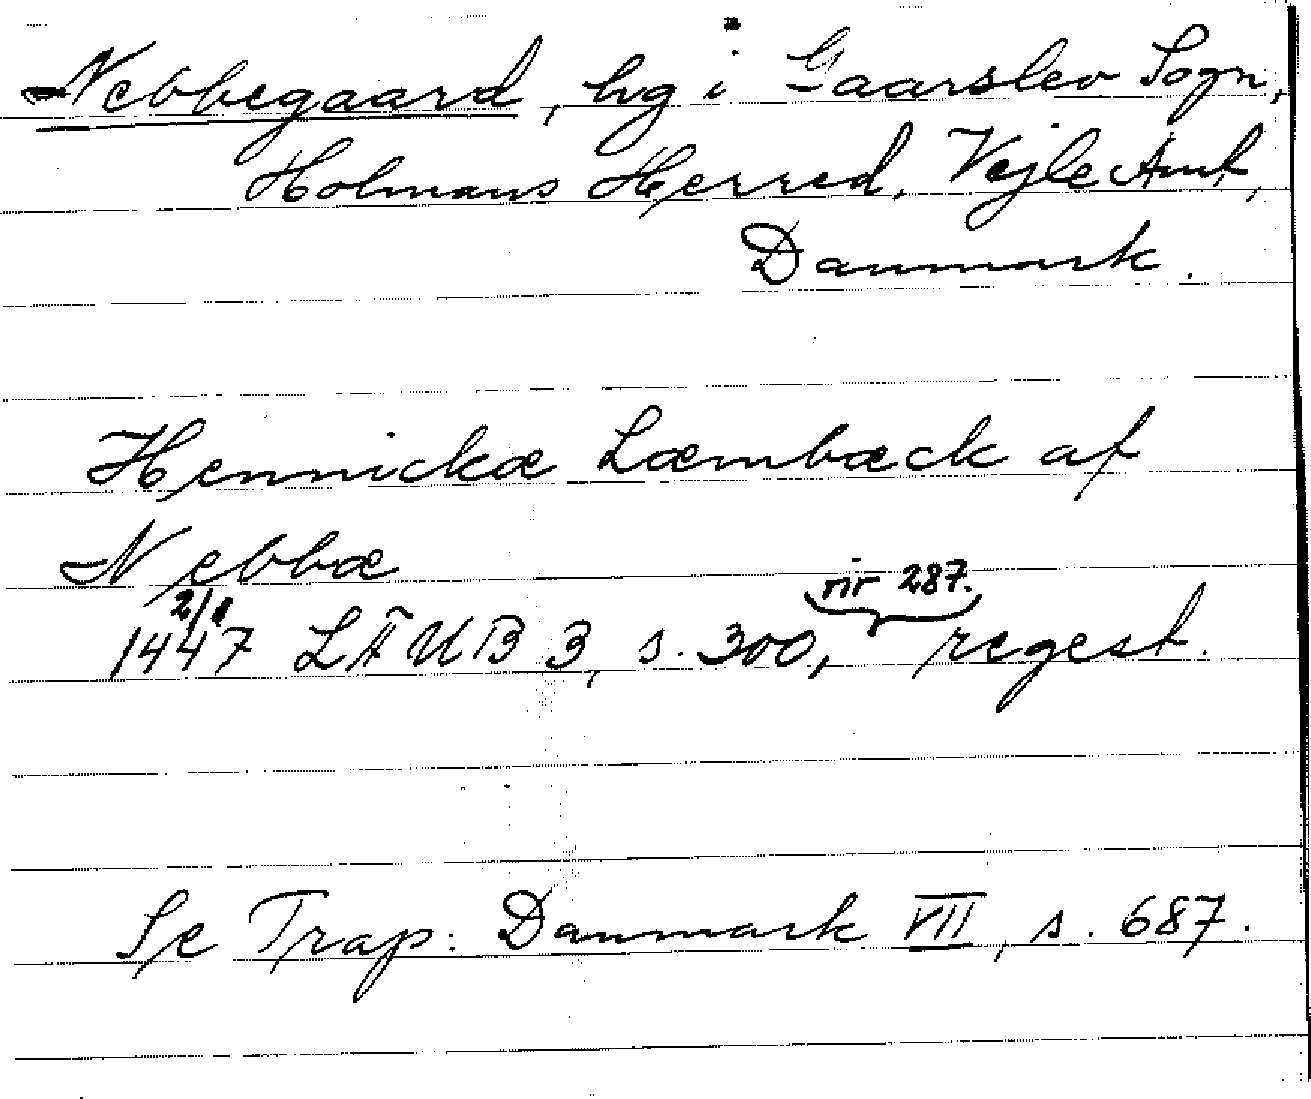 Nebbegaard, hg i Gaarslev Sogn,
Holmans Herred, Vejle Amt,
Danmark.
Hennickæ Læmbæck af
Nebbæ
nr 287.
2/1
1447 LÄUB 3, s. 300, regest.
Se Trap: Danmark VII, s. 687.